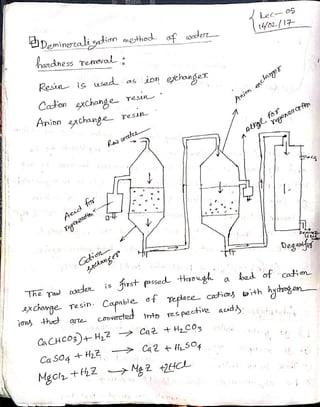 Lec- 05
14/02/17
Demineralization method of water
hardness removal :
Resin is used as ion exchanger
Cation exchange resin.
Anion exchange resin.
Raw water
Anion exchanger
Alkali for regeneration
Acid for regeneration
Cation exchanger
Degasifier
The raw water is first passed through a bed of cation
exchange resin. Capable of replace cations with hydrogen
ions that are converted into respective acids.
Ca(HCO3) + H2Z → CaZ + H2CO3
CaSO4 + H2Z → CaZ + H2SO4
MgCl2 + H2Z → MgZ + 2HCl